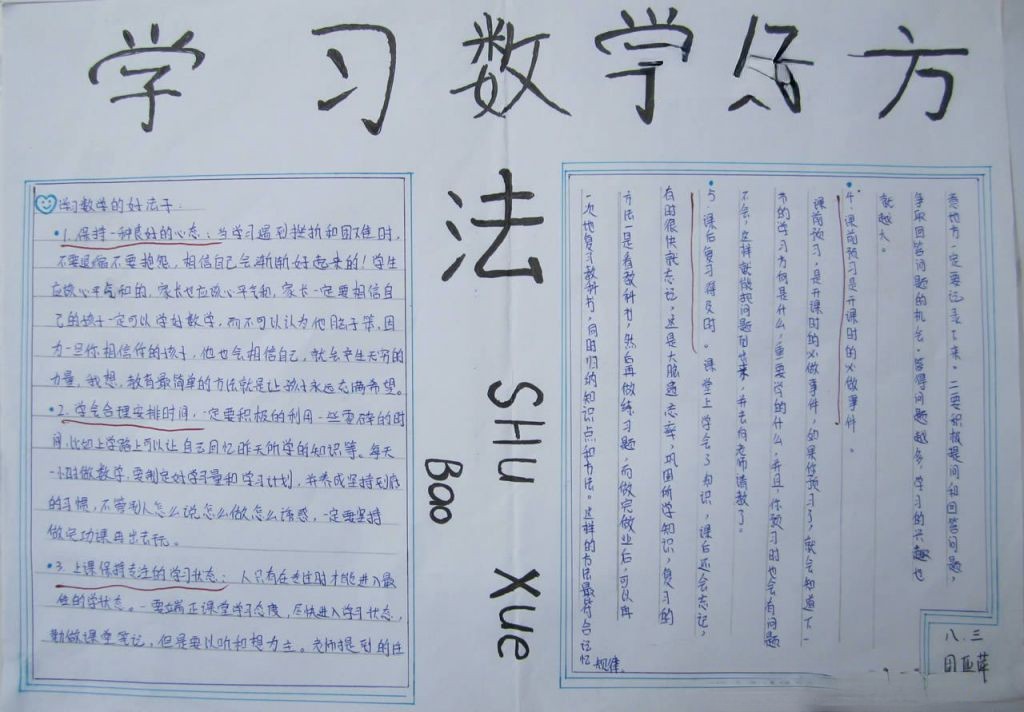 学习数学好方
法
SHU XUE
BAO
学习数学的好法子：
1. 保持一种良好的心态：当学习遇到挫折和困难时，
不要退缩不要抱怨，相信自己会渐渐好起来的！学生
应该心平气和的，家长也应该心平气和，家长一定要相信自
己的孩子一定可以学好数学，而不可以认为他脑子笨，因
为一旦你相信你的孩子，他也会相信自己，就会产生无穷的
力量，我想，教育最简单的方法就是让孩子永远充满希望。
2. 学会合理安排时间，一定要积极的利用一些零碎的时
间，比如上学路上可以让自己回忆昨天所学的知识等。每天
一小时做数学，要制定好学习量和学习计划，并养成坚持到底
的习惯，不管别人怎么说怎么做怎么诱惑，一定要坚持
做完功课再出去玩。
3. 上课保持专注的学习状态：人只有在专注时才能进入最
佳的学状态。一要端正课堂学习态度，尽快进入学习状态，
勤做课堂笔记，但是要以听和想为主。老师提到的注
意地方一定要记录下来。二要积极提问和回答问题，
争取回答问题的机会，答得问题越多，学习的兴趣也
就越大。
4. 课前预习是开课时的必做事件。
课前预习，是开课时的必做事件，如果你预习了，就会知道下一
节的学习方向是什么，重要学的什么，并且，你预习时也会有问题
不会，这样就做把问题记出来，并去向老师请教了。
5. 课后复习得及时。课堂上学会了知识，课后还会忘记，
有时很快就忘记，这是大脑遗忘率，巩固所学知识，复习的
方法一是看教科书，然后再做练习题，而做完做业后，可以再
一次地复习教科书，同时归纳知识点和方法。这样的方法最符合记忆
规律。
八.三